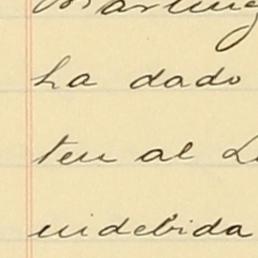 ha dado
ten al
indebida